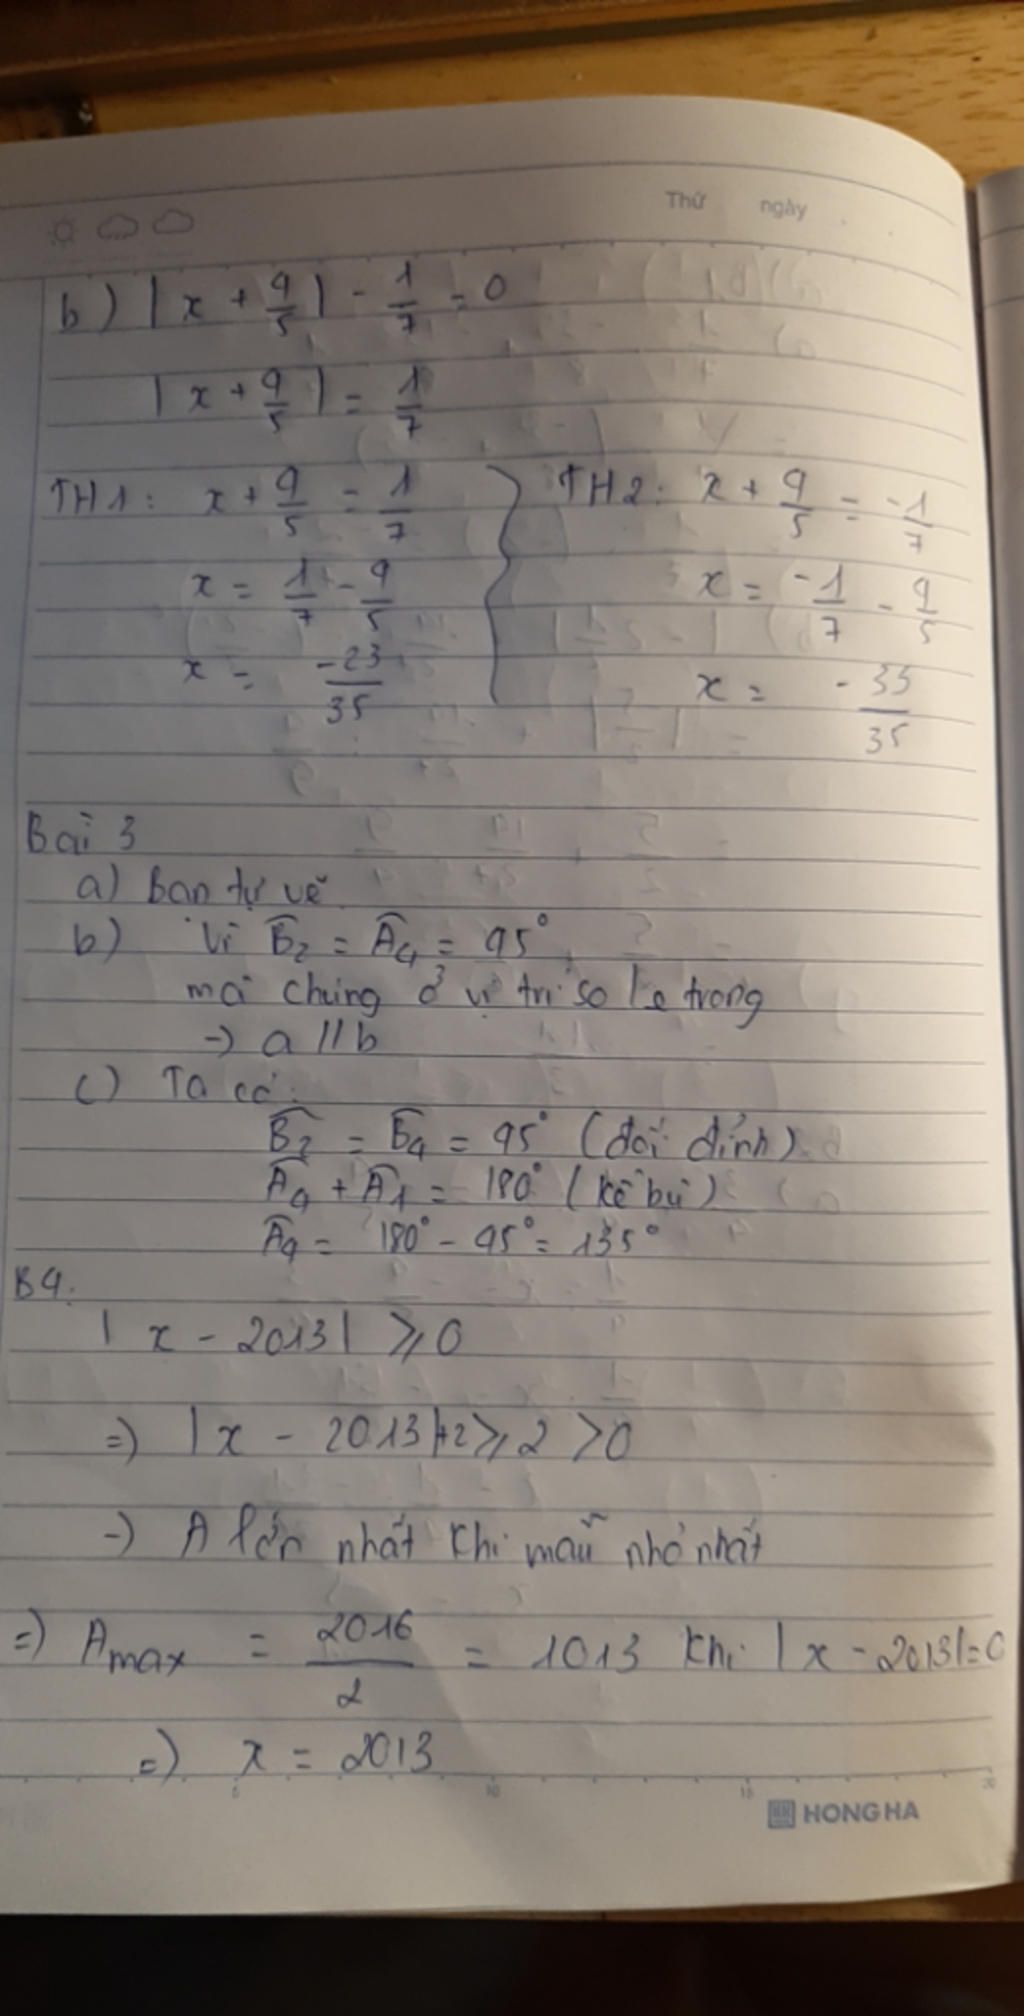 Thứ ngày
b) |x + 4/5| - 1/7 = 0
|x + 4/5| = 1/7
TH1: x + 4/5 = 1/7 TH2: x + 4/5 = -1/7
x = 1/7 - 4/5 x = -1/7 - 4/5
x = -23/35 x = -33/35
Bài 3
a) Bạn tự vẽ
b) Vì B̂2 = Â4 = 45°
mà chúng ở vị trí so le trong
→ a // b
c) Ta có:
B̂2 = B̂4 = 45° (đối đỉnh)
Â4 + Â1 = 180° (kề bù)
Â4 = 180° - 45° = 135°
B4.
|x - 2013| ≥ 0
=> |x - 2013|+2 ≥ 2 > 0
→ A lớn nhất khi mẫu nhỏ nhất
=> Amax = 2016/2 = 1013 khi |x - 2013| = 0
=> x = 2013
5 10 15 20
HONG HA